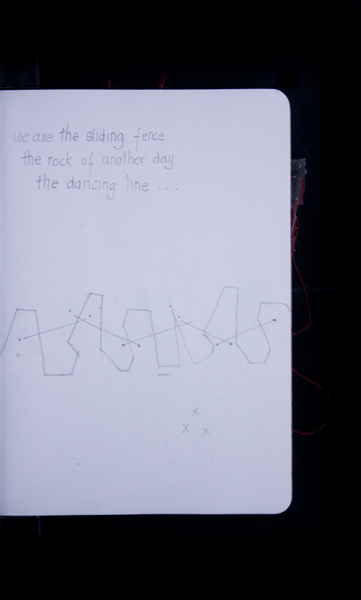 we are the sliding fence
the rock of another day
the dancing line ...
x
x x